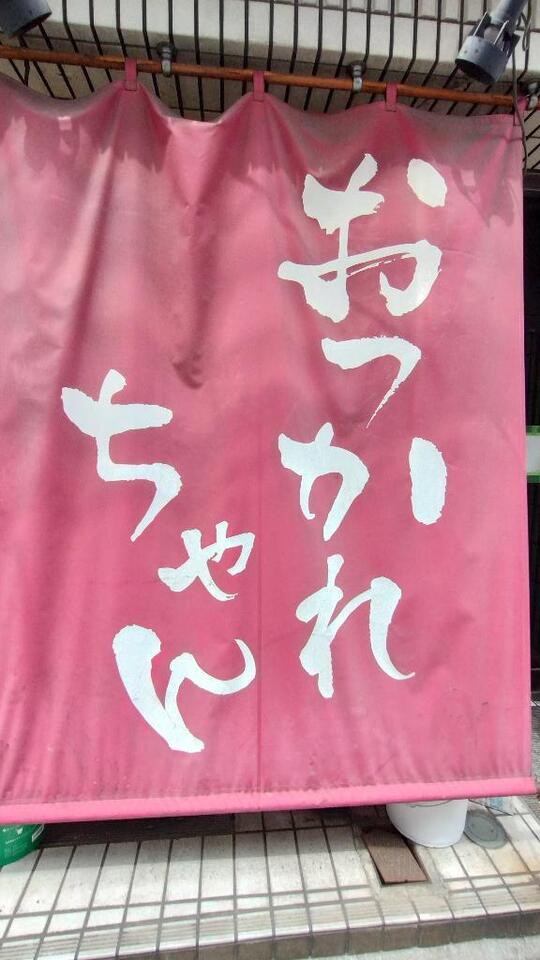 おつかれ
ちゃん